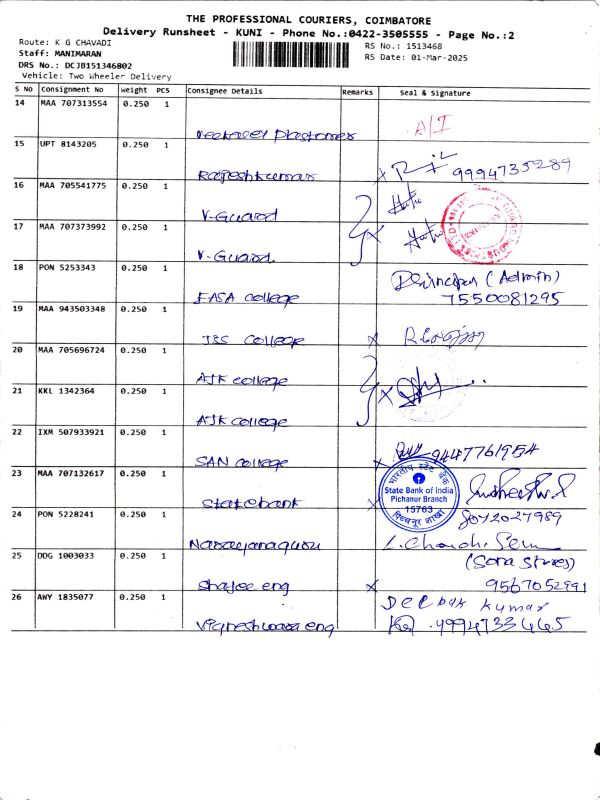 THE PROFESSIONAL COURIERS, COIMBATORE
Delivery Runsheet - KUNI - Phone No.:0422-3505555 - Page No.:2
Route: K G CHAVADI
Staff: MANIMARAN
DRS No.: DCJB151346802
Vehicle: Two Wheeler Delivery
RS No.: 1513468
RS Date: 01-Mar-2025
S No Consignment No Weight PCS Consignee Details Remarks Seal & Signature
14 MAA 707313554 0.250 1
A/I
15 UPT 8143205 0.250 1
Rajeshkumar 9994735289
16 MAA 705541775 0.250 1
V-Guard
17 MAA 707373992 0.250 1
V-Guard
18 PON 5253343 0.250 1
EASA college (Admin)
7550081295
19 MAA 943503348 0.250 1
JSS college
20 MAA 705696724 0.250 1
AJK college
21 KKL 1342364 0.250 1
AJK college
22 IXM 507933921 0.250 1
SAN college 9447761954
23 MAA 707132617 0.250 1
Statebank
भारतीय स्टेट बैंक
State Bank of India
Pichanur Branch
15763
पिच्चनूर शाखा
24 PON 5228241 0.250 1
Narayanaguru 8072027989
25 DDG 1003033 0.250 1
Shajee eng (Sona Stores)
9567052991
26 AWY 1835077 0.250 1
Vigneshwara eng Deepak Kumar
9994733665